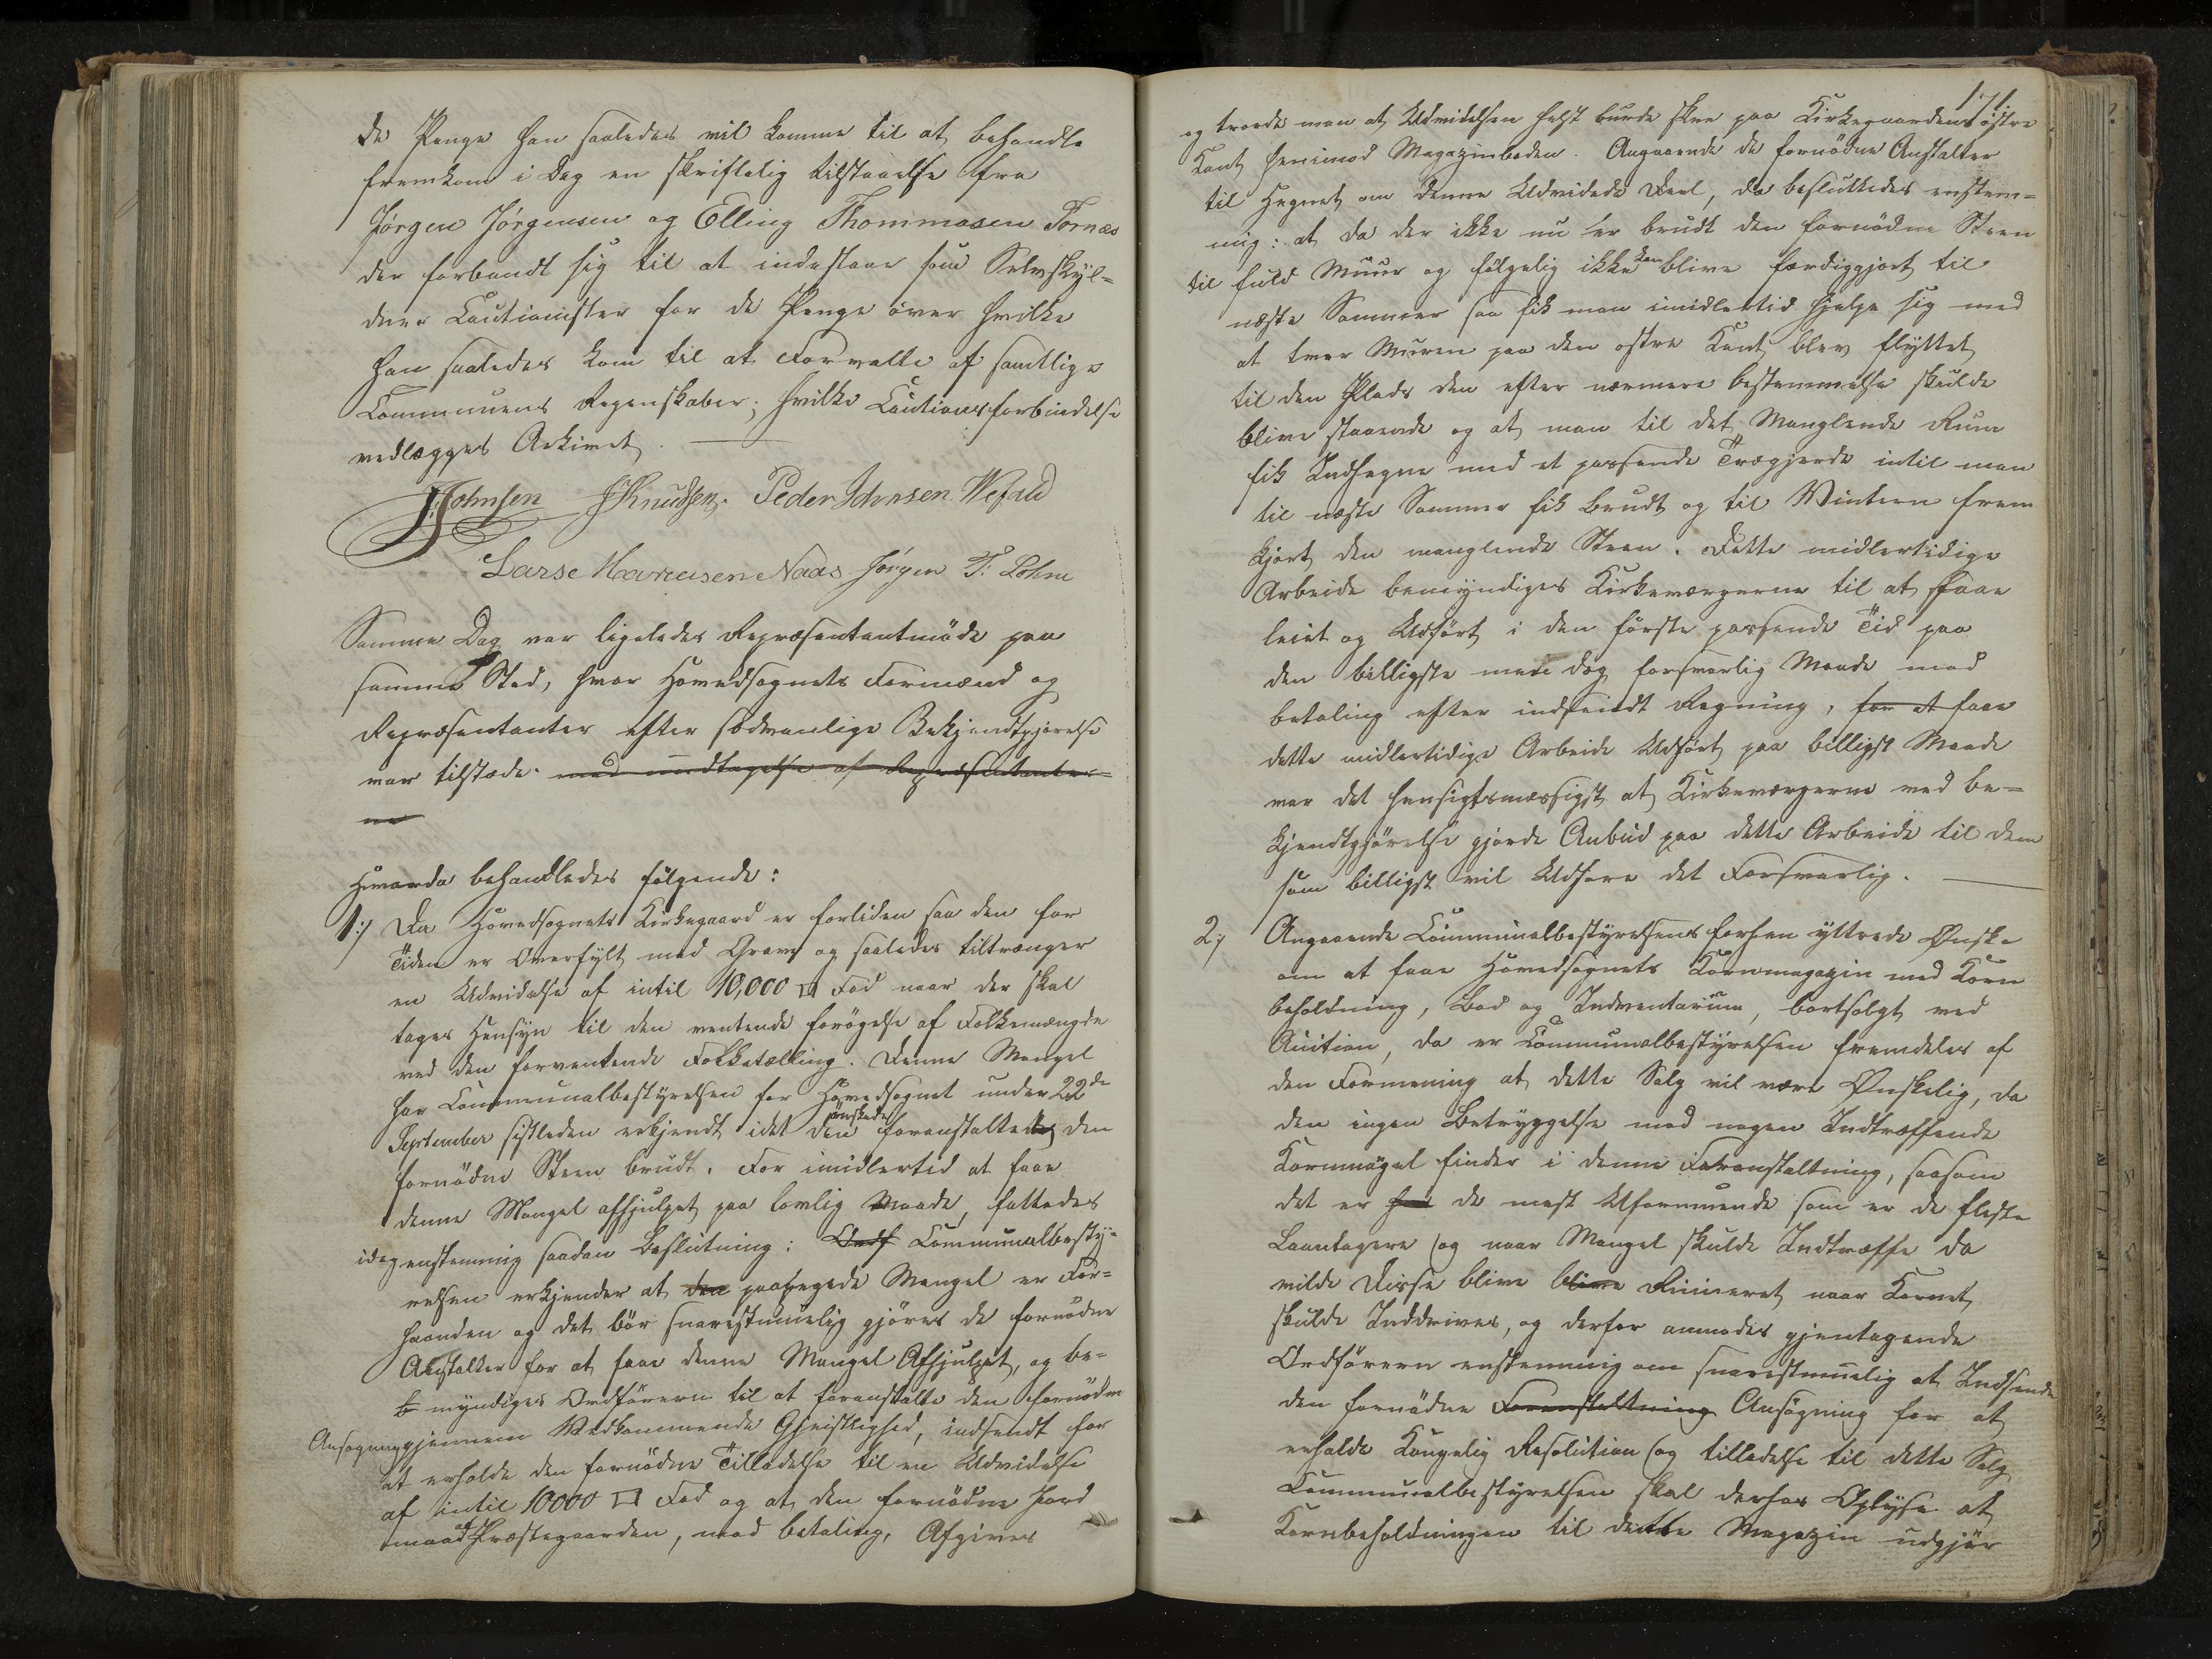 de Penge han saaledes vil komme til at behandle
fremkom i Dag en skriftelig tilstaaelse fra
Jørgen Jørgensen og Elling Thommasen Tornæs
der forbandt sig til at indestaae som Selvskyl=
dner Cautionister for de Penge över hvilke
han saaledes kom til at Forvalte af samtlige
Communens Regenskaber; hvilke Cautionsforbindelse
vedlægges Arkivet.
J. Johnsen JKnudsen. Peder Johnsen Wefald
Larse Naas Jörgen T: Lohne
Samme Dag var ligeledes Repræsentantmöde paa
samme Sted, hvor Hovedsognets Formænd og
Repræsentanter efter sædvanlige Bekjendtgjörelse
var tilstæde. med undtagelse af Repræsentanter=
ne
Hvorda behandledes fölgende:
1:/ Da Hovedsognets Kirkegaard er forliden saa den for
Tiden er Overfylt med Grave og saaledes tiltrænger
en Udvidelse af intil 10,000 □ Fod naar der skal
tages Hensyn til den ventende forögelse af Folkemængde
ved den forventende Folketælling. Denne Mangel
har Communalbestyrelsen for Hovedsognet under 22de
September sistleden erkjendt idet den önskede foranstaltet den
fornödne Steen brudt. For imidlertid at faae
denne Mangel afhjulpet paa lovlig Maade, fattedes
idag enstemmig saadan Beslutning: Ordf Communalbesty=
relsen erkjender at den paaklagede Mangel er For=
haanden og det bör snarestmuelig gjöres de fornödne
Anstalter for at faae denne Mangel Afhjulpet, og be=
b myndiges Ordförern til at foranstalte den fornödne
Ansögning gjennem Vedkommende Gjeistlighed, indsendt for
at erholde den fornödne Tilladelse til en Udvidelse
af intil 10000 □ Fod og at den fornödne Jord
maa af Præstegaarden, mod betaling, Afgives
171
og troede man at Udvidelsen helst burde skee paa Kirkegaardens östre
Kant henimod Magazinboden. Angaaende de fornödne Anstalter
til Hegnet om denne Udvidede Deel, da besluttedes enstem=
mig: at da der ikke nu er brudt den fornödne Steen
til fuld Muur og fölgelig ikke kan blive færdiggjort til
næste Sommer saa fik man imidlertid hjelpe sig med
at tvær Muren paa den östre Kant blev flyttet
til den Plads den efter nærmere bestemmelse skulde
blive staaende og at man til det Manglende Rum
fik Indhegne med et passende Trægjerde intil man
til næste Sommer fik brudt og til Vintern frem
kjört den manglende Steen. Dette midlertidige
Arbeide bemyndiges Kirkeværgerne til at faae
leiet og Udfört i den förste passende Tid paa
den billigste men dog forsvarlig Maade mod
betaling efter indsendt Regning, for at faae
dette midlertidige Arbeide Udfört paa billigst Maade
var det hensigtsmæssigst at Kirkeværgerne ved be=
kjendtgjörelse gjorde Anbud paa dette Arbeide til dem
som billigst vil Udföre det Forsvarlig.
2:/ Angaaende Communalbestyrelsens forhen yttrede Önske
om at faae Hovedsognets Kornmagazin med Korn
beholdning, Bod og Indventarium, bortsolgt ved
Auction, da er Communalbestyrelsen fremdeles af
den Formening at dette Salg vil være Ønskelig, da
den ingen Betryggelse mod nogen Indtræffende
Kornmagel finder i denne Foranstaltning, saasom
det er for de mest Uformuende som er de fleste
Laantagere og naar Mangel skulde Indtræffe da
vilde Disse blive blive Ruineret naar Kornet
skulde Inddrives, og derfor anmodes gjentagende
Ordförern enstemmig om snarestmuelig at Indsende
den fornödne Foranstaltning Ansögning for at
erholde Kongelig Resolution og tilladelse til dette Salg
Communalbestyrelsen skal derhos Oplyse at
Kornbeholdningen til dette Magazin udgjör